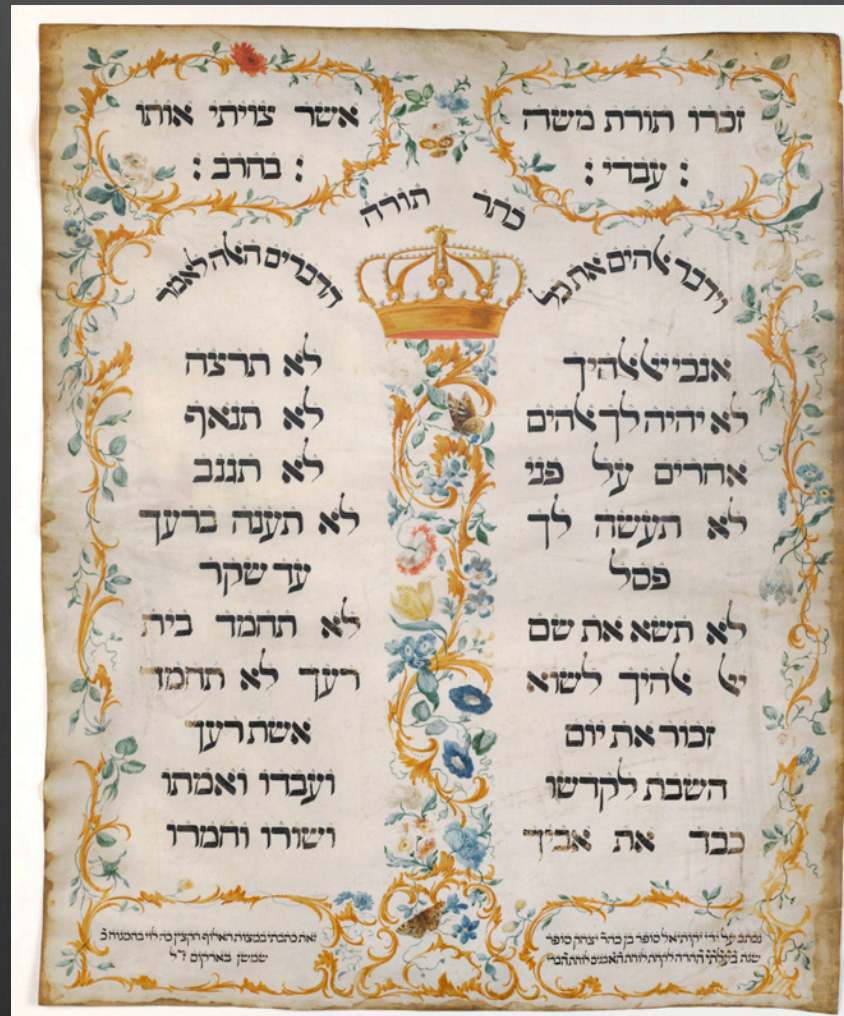 זכרו תורת משה
: עבדי :
אשר צויתי אותו
: בחרב :
כתר תורה
וידבר אלהים את כל
הדברים האלה לאמר
אנכי יי אלהיך
לא יהיה לך אלהים
אחרים על פני
לא תעשה לך
פסל
לא תשא את שם
יי אלהיך לשוא
זכור את יום
השבת לקדשו
כבד את אביך
לא תרצח
לא תנאף
לא תגנב
לא תענה ברעך
עד שקר
לא תחמד בית
רעך לא תחמד
אשת רעך
ועבדו ואמתו
ושורו וחמרו
נכתב על ידי יקותיאל סופר בן כהר יצחק סופר
שנת
זאת כתבתי במצות האלוף הקצין כה לוי בהמנוח כ
שמשן בארקום